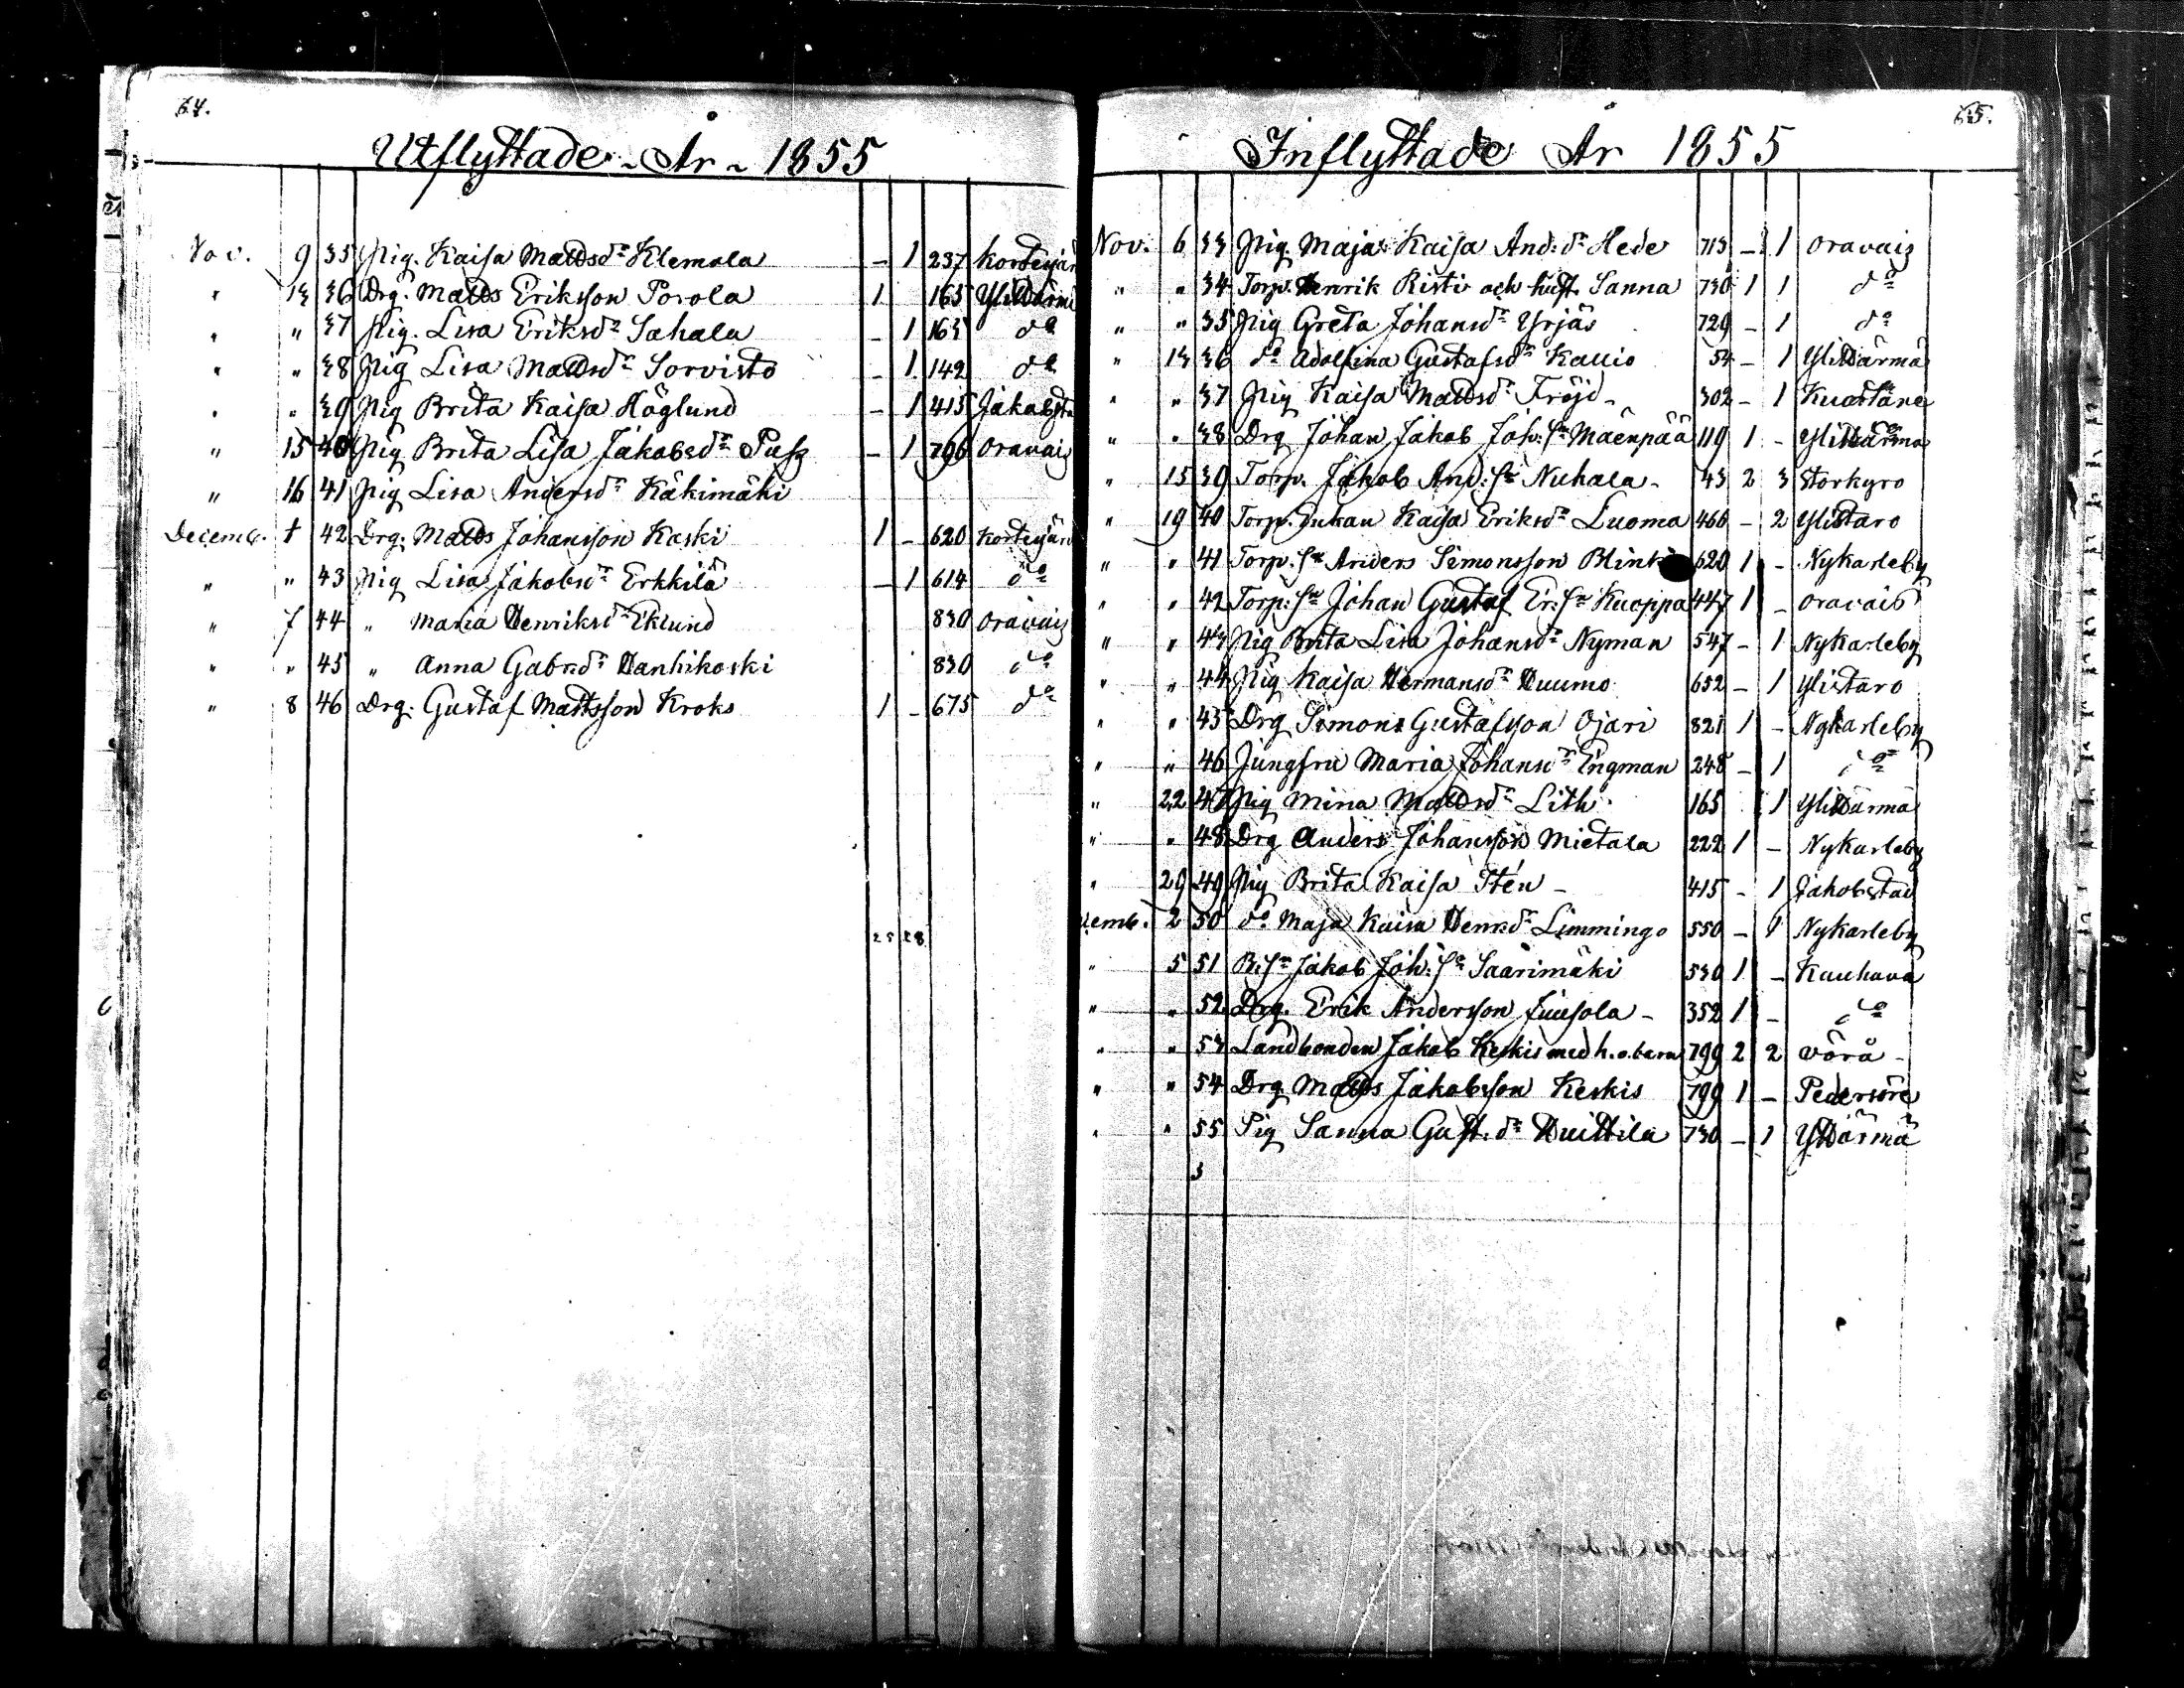 64.
Utflyttade - År - 1855
Nov. 9 35 Pig. Kaisa Mattsdr Klemola - 1 237 Kortesjär
" 13 36 Drg. Matts Eriksson Porola 1 165 Ylihärmä
" " 37 Pig. Lisa Eriksdr Sahala - 1 163 do
" " 38 Pig Lisa Mattsdr Sorvisto - 1 142 do
" " 39 Pig Brita Kaisa Höglund - 1 415 Jakobsta
" 15 40 Pig Brita Lisa Jakobsdr - 1 796 Oravais
" 16 41 Pig Lisa Andersdr Käkimäki
Decemb. 1 42 Drg. Matts Johansson Kaski 1 - 620 Kortesjär
" " 43 Pig Lisa Jakobsdr Erkkilä - 1 614 do
" 7 44 " Maria Henriksdr Eklund 830 Oravais
" " 45 " Anna Gabrsdr Hanhikoski 830 do
" 8 46 Drg. Gustaf Mattsson Kroks 1 - 675 do
25 28
65.
Inflyttade År 1855
Nov. 6 33 Pig. Maja Kaisa And. dr Hede 713 - 1 Oravais
" " 34 Torp. Henrik Risti och hust. Sanna 730 1 1 do
" " 35 Pig Greta Johansdr Yrjäs 729 - 1 do
" 13 36 do Adolfina Gustafsdr Kauio 54 - 1 Ylihärmä
" " 37 Pig Kaisa Mattsdr Fröjd - 302 - 1 Kuortane
" " 38 Drg Johan Jakob Joh: sn Mäenpää 119 1 - Ylihärmä
" 15 39 Torp. Jakob And: sn Nuhala - 43 2 3 Storkyro
" 19 40 Torp. Enkan Kaisa Eriksdr Luoma 466 - 2 Ylistaro
" " 41 Torp. sn Anders Simonsson 620 1 - Nykarleby
" " 42 Torp: sn Johan Gustaf Er: sn Kuoppa 447 1 - Oravais
" " 43 Pig Brita Lisa Johansdr Nyman 547 - 1 Nykarleby
" " 44 Pig Kaisa Hermansdr Huumo 652 - 1 Ylistaro
" " 45 Drg Simon Gustafsson Ojari 821 1 - Nykarleby
" " 46 Jungfru Maria Johansdr Engman 248 - 1 do
" 22 47 Pig Mina Mattsdr Lith 165 1 Ylihärmä
" " 48 Drg Anders Johansson Mietala 222 1 - Nykarleby
" 29 49 Pig Brita Kaisa Stén - 415 - 1 Jakobstad
cemb. 2 50 do Maja Kaisa Henrsdr Limmingo 550 - 1 Nykarleby
" 5 51 B: sn Jakob Joh: sn Saarimäki 530 1 - Kauhava
" " 52 Drg. Erik Andersson Juusola - 352 1 - do
" " 53 Landbonden Jakob Keskis med h. o. barn 799 2 2 Vörå -
" " 54 Drg Matts Jakobsson Keskis 799 1 - Pedersöre
" " 55 Pig Sanna Gust. dr Huittila 730 - 1 Ylihärmä